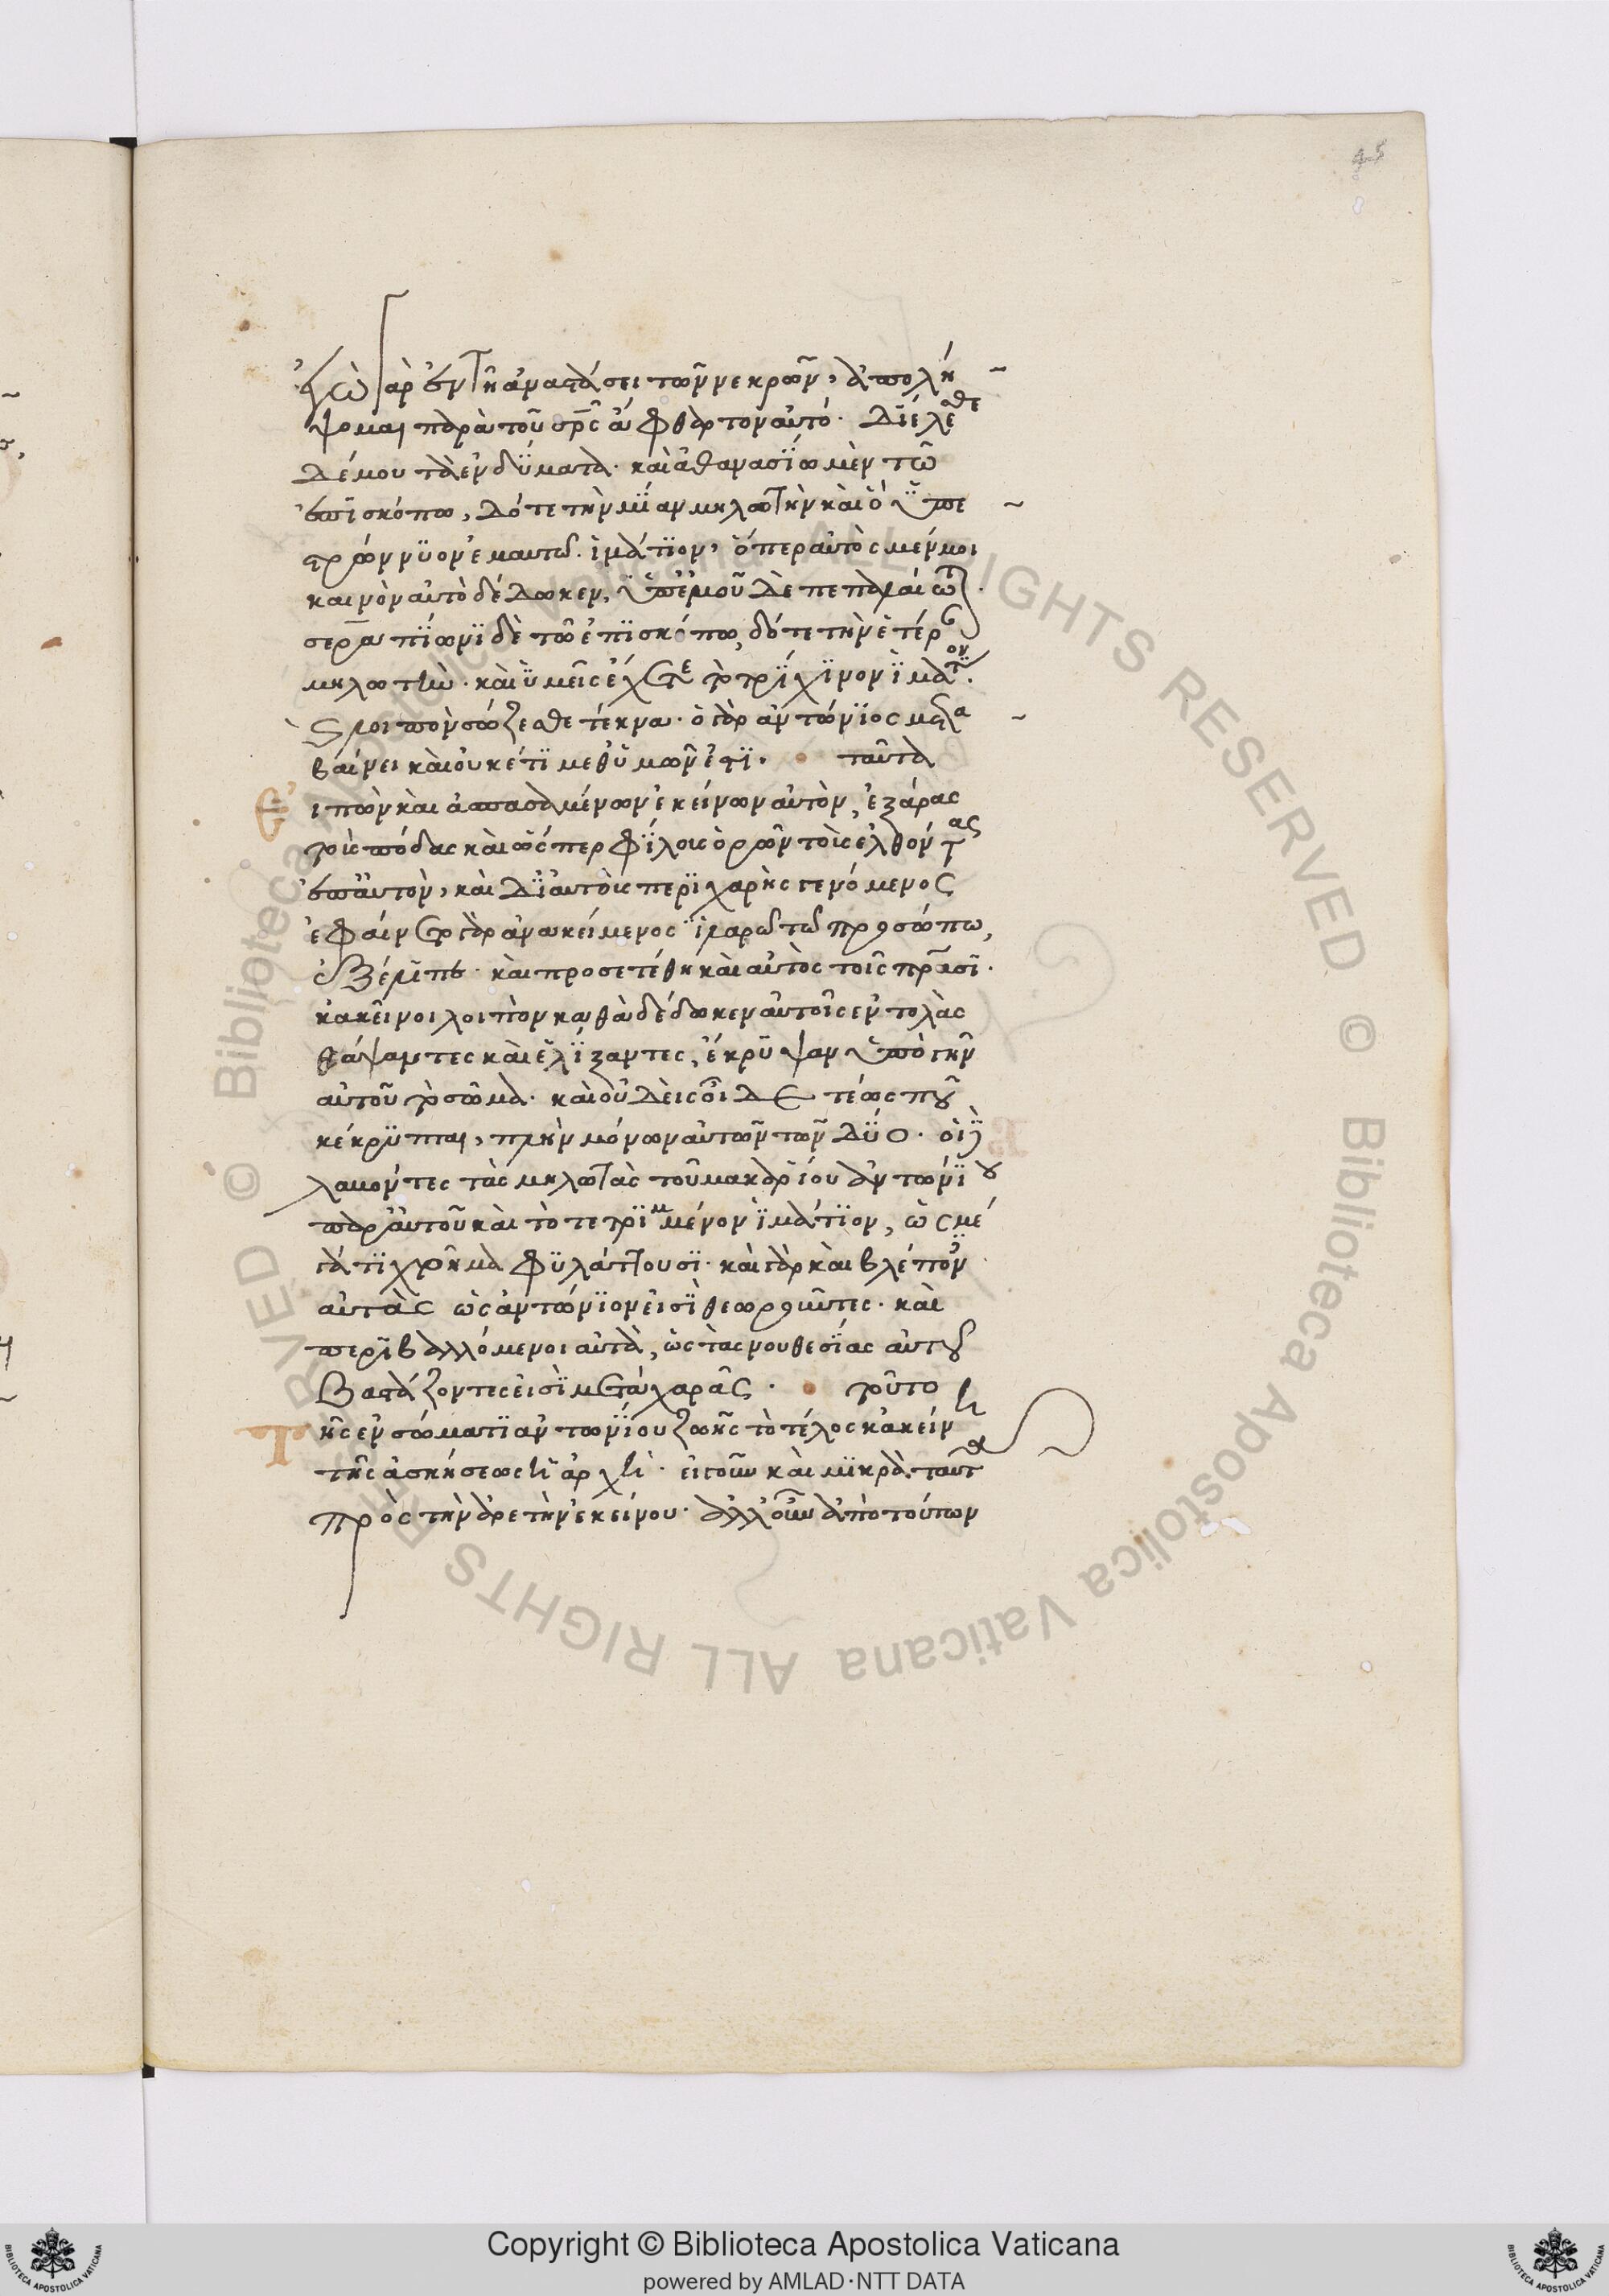 45
ἐγὼ γὰρ ἐν τῆ ἀναστάσει τῶν νεκρῶν, ἀπολή
ψομαι παρὰ τοῦ σρ̅ς ἄφθαρτον αὐτό. Διέλεσθε
δέ μου τὰ ἐνδύματα. καὶ ἀθανασίω μὲν τῶ
ἐπισκόπω, δότε τὴν μίαν μηλωτὴν καὶ ὃ ὑπε
στρώννυον ἐμαυτῶ ἱμάτιον, ὅπερ αὐτὸς μέν μοι
καινὸν αὐτὸ δέδωκεν, ὑπ' ἐμοῦ δὲ πεπαλαίωτ.
σεραπίωνι δὲ τῶ ἐπισκόπω, δότε τὴν ἑτέραν
μηλωτὴν. καὶ ὑμεῖς ἔχετε τὸ τρίχινον ἱμάτιον.
καὶ λοιπὸν σώζεσθε τέκνα. ὁ γὰρ ἀντώνιος μετα
βαίνει καὶ οὐκέτι μεθ' ὑμῶν ἐστι. ταῦτα
εἰπὼν καὶ ἀσπασαμένων ἐκείνων αὐτὸν, ἐξάρας
τοὺς πόδας καὶ ὥσπερ φίλους ὁρῶν τοὺς ἐλθόντας
ἐπ' αὐτὸν, καὶ δι' αὐτοὺς περιχαρὴς γενόμενος
ἐφαίνετο γὰρ ἀνακείμενος ἱλαρῶ τῶ προσώπω,
ἐξέλιπε. καὶ προσετέθη καὶ αὐτὸς τοῖς πρ̅ασι.
κἀκεῖνοι λοιπὸν καθὰ δέδωκεν αὐτοῖς ἐντολὰς
θάψαντες καὶ ἑλίξαντες, ἔκρυψαν ὑπὸ γῆν
αὐτοῦ τὸ σῶμα. καὶ οὐδεὶς οἶδε τέως ποῦ
κέκρυπται, πλὴν μόνων αὐτῶν τῶν δύο. οἱ δὲ
λαβόντες τὰς μηλωτὰς τοῦ μακαρίου ἀντωνίου
παρ' αὐτοῦ καὶ τὸ τετριμμένον ἱμάτιον, ὡς μέ
γα τι χρῆμα φυλάττουσι. καὶ γὰρ καὶ βλέποντες
αὐτὰς ὡς ἀντώνιον εἰσὶ θεωροῦντες. καὶ
περιβαλλόμενοι αὐτὰ, ὡς τὰς νουθεσίας αὐτοῦ
βαστάζοντες εἰσὶ μετὰ χαρᾶς. τοῦτο
τῆς ἐν σώματι ἀντωνίου ζωῆς τὸ τέλος κἀκείνη
τῆς ἀσκήσεως ἡ ἀρχή. εἰ γοῦν καὶ μικρὰ ταῦτα
πρὸς τὴν ἀρετὴν ἐκείνου. ἀλλ' οὖν ἀπὸ τούτων